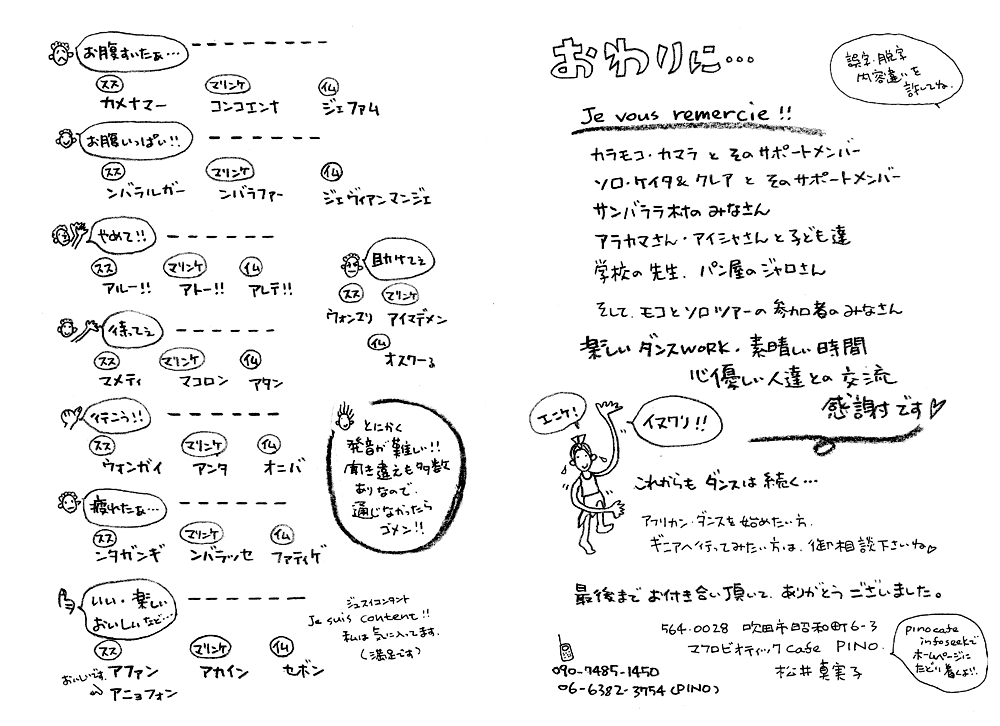 お腹すいたぁ…
スス マリンケ イム
カメナマー コンコエンナ ジェファム
お腹いっぱい!!
スス マリンケ イム
ンバラルガー ンバラファー ジェヴィアンマンジェ
やめて!!
スス マリンケ イム
アルー!! アトー!! アレテ!!
助けてぇ
スス マリンケ
ウォンマリ アイマデメン
イム
オスクーる
待ってぇ
スス マリンケ イム
マメティ マコロン アタン
行こう!!
スス マリンケ イム
ウォンガイ アンタ オニバ
とにかく
発音が難しい!!
聞き違えも多数
ありなので、
通じなかったら
ゴメン!!
疲れたぁ…
スス マリンケ イム
ンタガンギ ンバラッセ ファティゲ
いい・楽しい
おいしいなど…
スス マリンケ イム
アファン アカイン セボン
おいしいです。
アニョフォン
ジュスイコンタント
Je suis content!!
私は気に入ってます。
(満足です)
おわりに…
誤字・脱字
内容違いを
許してね。
Je vous remercie!!
カラモコ・カマラ と そのサポートメンバー
ソロ・ケイタ& クレア と そのサポートメンバー
サンバララ村の みなさん
アラカマさん・アイシャさんと子ども達
学校の先生、パン屋のジャロさん
そして、モコとソロツアーの 参加者のみなさん
楽しいダンスWORK・素晴しい時間
心優しい人達との交流
感謝です♡
エニケ!
イヌワリ!!
これからも ダンスは続く…
アフリカン・ダンスを始めたい方、
ギニアへ行ってみたい方は、御相談下さいね♡
最後まで お付き合い頂いて、ありがとう ございました。
564-0028 吹田市昭和町6-3
マクロビオティック Cafe PINO.
松井真実子
090-9485-1450
06-6382-3754(PINO)
pinocafe
infoseekで
ホームページに
たどり着くよ!!